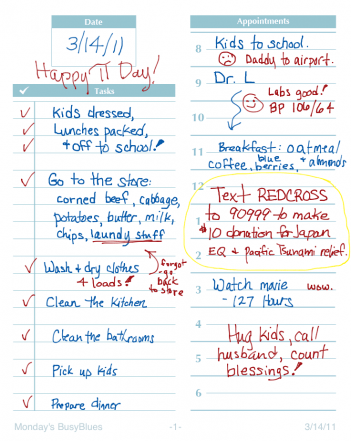 Date
3/14/11
Happy π Day!
✓ Tasks
✓ Kids dressed,
✓ Lunches packed,
✓ + off to school!
✓ Go to the store:
corned beef, cabbage,
potatoes, butter, milk,
chips, laundy stuff
forgot-
go
back
to store
✓ Wash + dry clothes
4 loads!
✓ Clean the kitchen
✓ Clean the bathrooms
✓ Pick up kids
✓ Prepare dinner
Appointments
8 Kids to school.
Daddy to airport.
9 Dr. L
Labs good!
BP 106/64
10
11 Breakfast: oatmeal
coffee, blue berries, + almonds
12
Text REDCROSS
1 to 90999 to make
$10 donation for Japan
2 EQ + pacific Tsunami relief.
3 Watch movie wow.
- 127 Hours
4
Hug kids, call
5 husband, count
blessings!
6
Monday's BusyBlues -1- 3/14/11